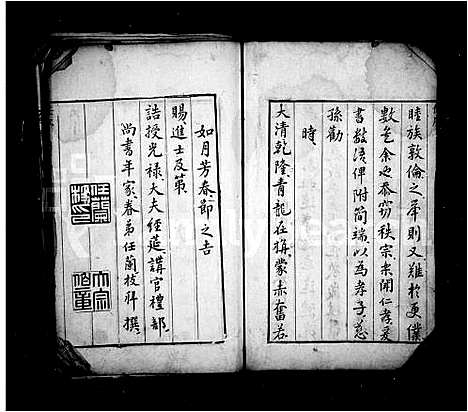 睦族敦倫之舉則又難於更僕
數爰余也忝窃秩宗樂聞仁孝爰
書數語俾附簡端以為孝子慈
孫勸
時
大清乾隆青龍在旃蒙赤奮若
如月芳春節之吉
賜進士及第
誥授光禄大夫經筵講官禮部
尚書年家眷弟任蘭枝拜撰
任蘭枝印
大宗伯章